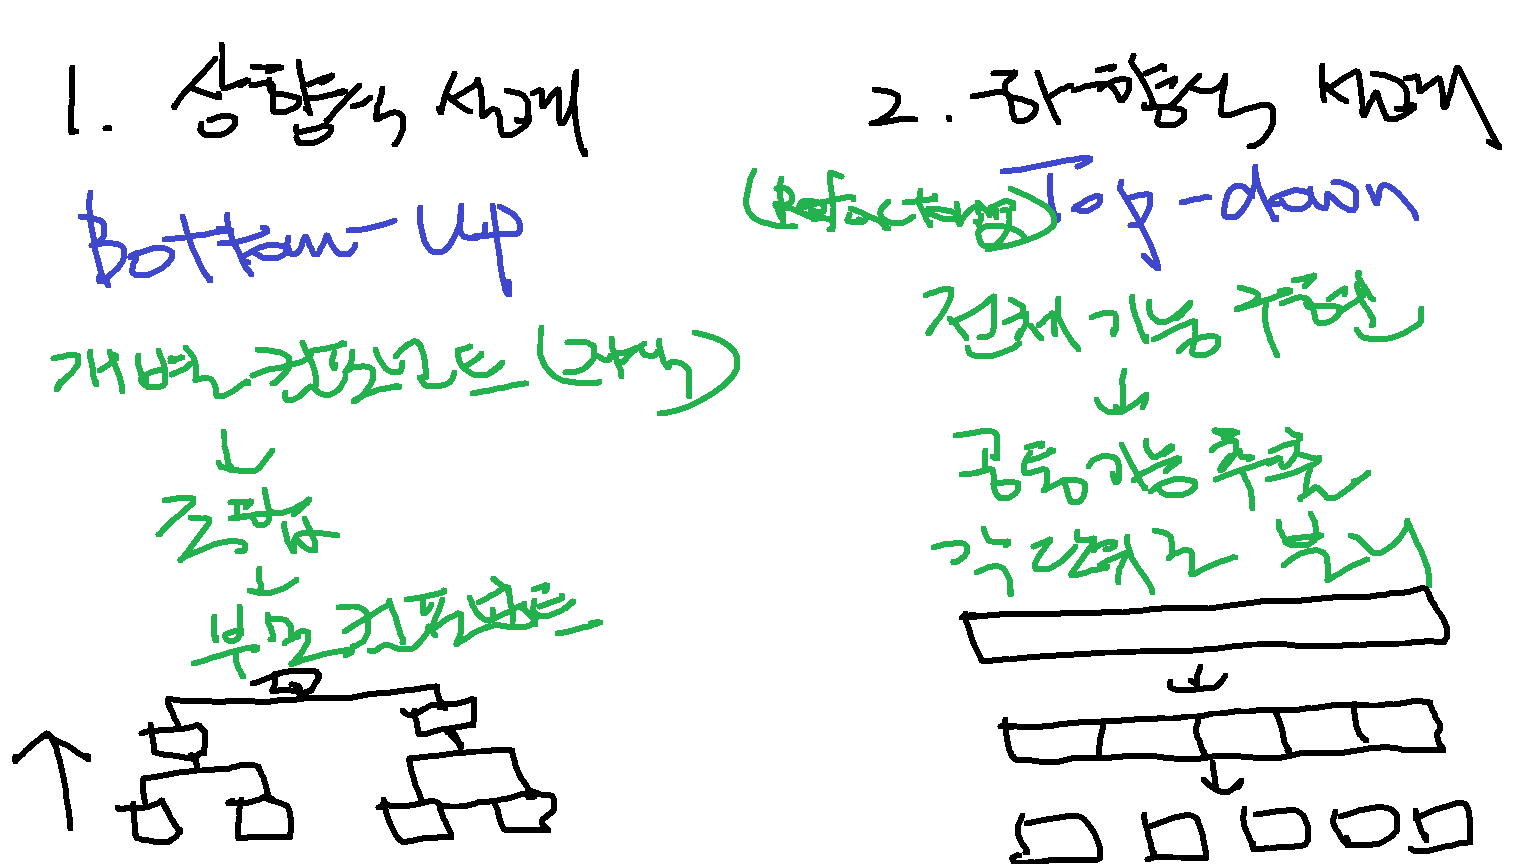 1. 상향식 설계
Bottom-Up
개별 컴포넌트 (자식)
조합
부모 컴포넌트
2. 하향식 설계
(Refactoring) Top-down
전체 기능 구현
공통기능 추출
각 단위로 분리